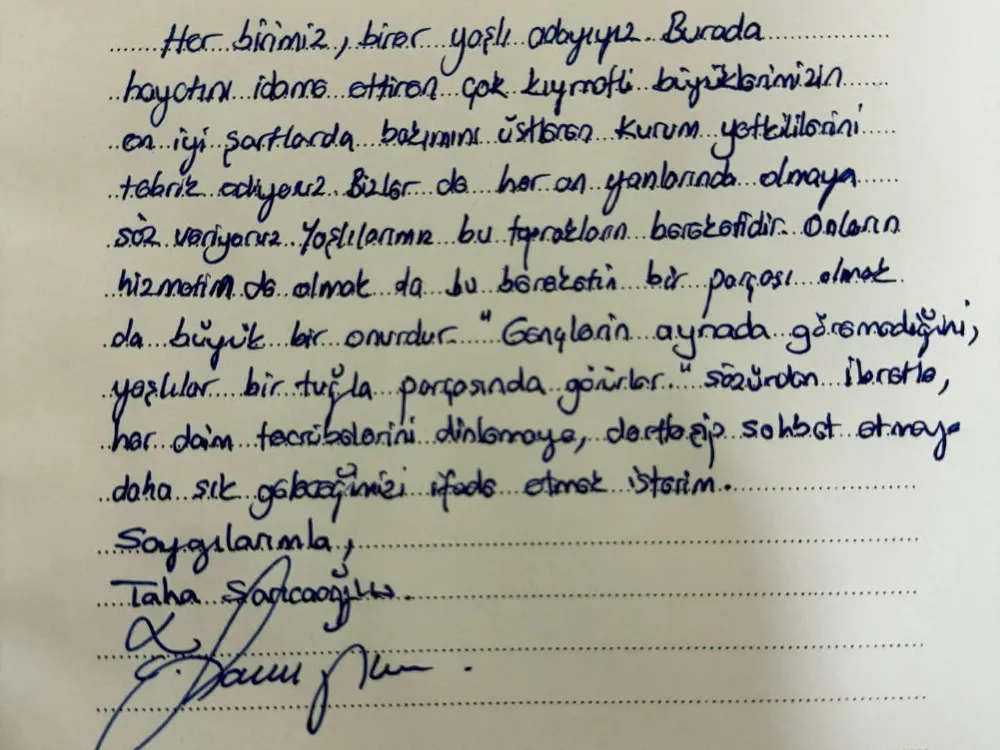 Her birimiz, birer yaşlı adayıyız. Burada
hayatını idame ettiren çok kıymetli büyüklerimizin
en iyi şartlarda bakımını üstlenen kurum yetkililerini
tebrik ediyoruz. Bizler de her an yanlarında olmaya
söz veriyoruz. Yaşlılarımız bu toprakların bereketidir. Onların
hizmetin de olmak da bu bereketin bir parçası olmak
da büyük bir onurdur. "Gençlerin aynada göremediğini,
yaşlılar bir tuğla parçasında görürler." sözünden ibretle,
her daim tecrübelerini dinlemeye, dertleşip sohbet etmeye
daha sık geleceğimizi ifade etmek isterim.
Saygılarımla,
Taha Sarıcaoğlu.